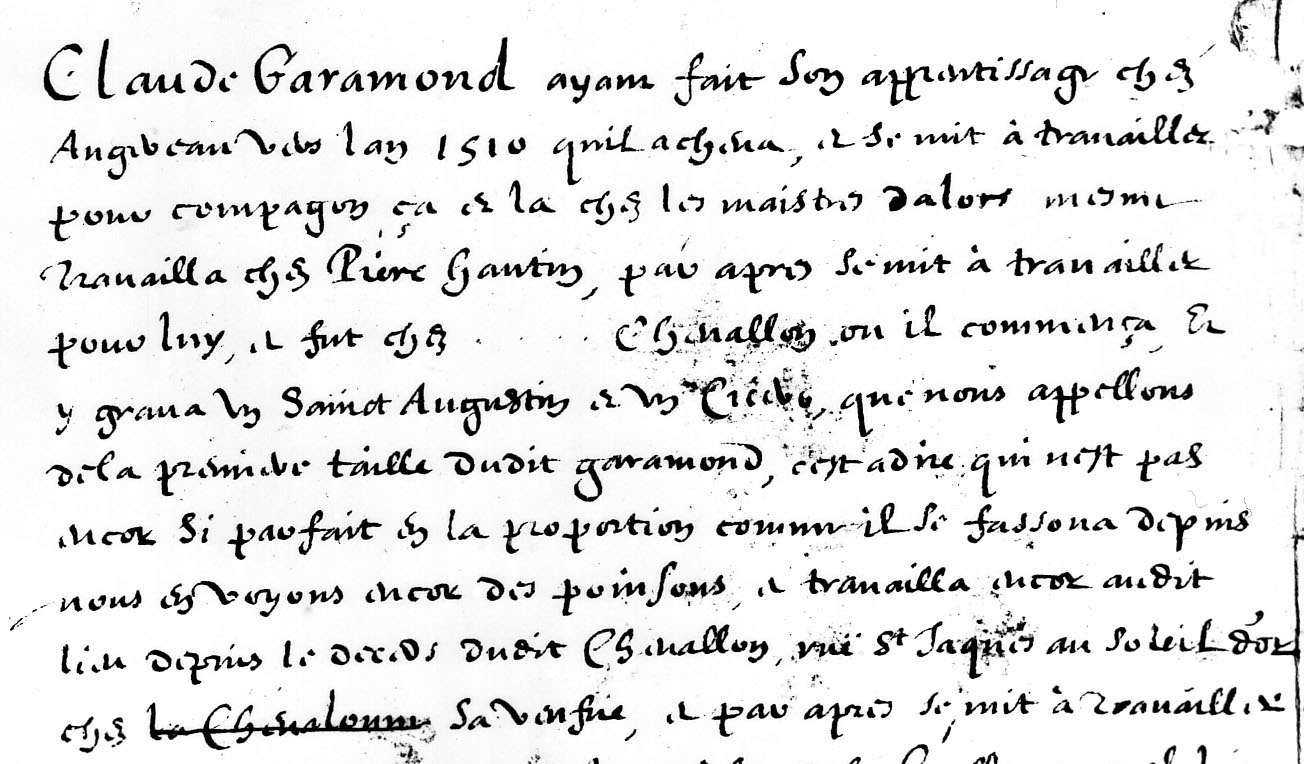 Claude Garamond ayant fait son apprentissage chez
Augereau vers lan 1510 quil acheva, et se mit à travailler
pour compagon ça et la chez les maistres dalors mesme
travailla chez Pierre hautin, par apres se mit à travailler
pour luy, et fut chez . . . . . Chevallon ou il commença, Et
y grava un Sainct Augustin et un Cicero, que nous appellons
de la premiere taille dudit garamond, cest adire qui nest pas
encor si parfait en la proportion comme il se fassona depuis
nous en voyons encor des poinsons, et travailla encor audit
lieu depuis le deceds dudit Chevallon, ruë St Jaques au soleil d'or
chez la Chevalonne sa veufve, et par apres se mit à travailler